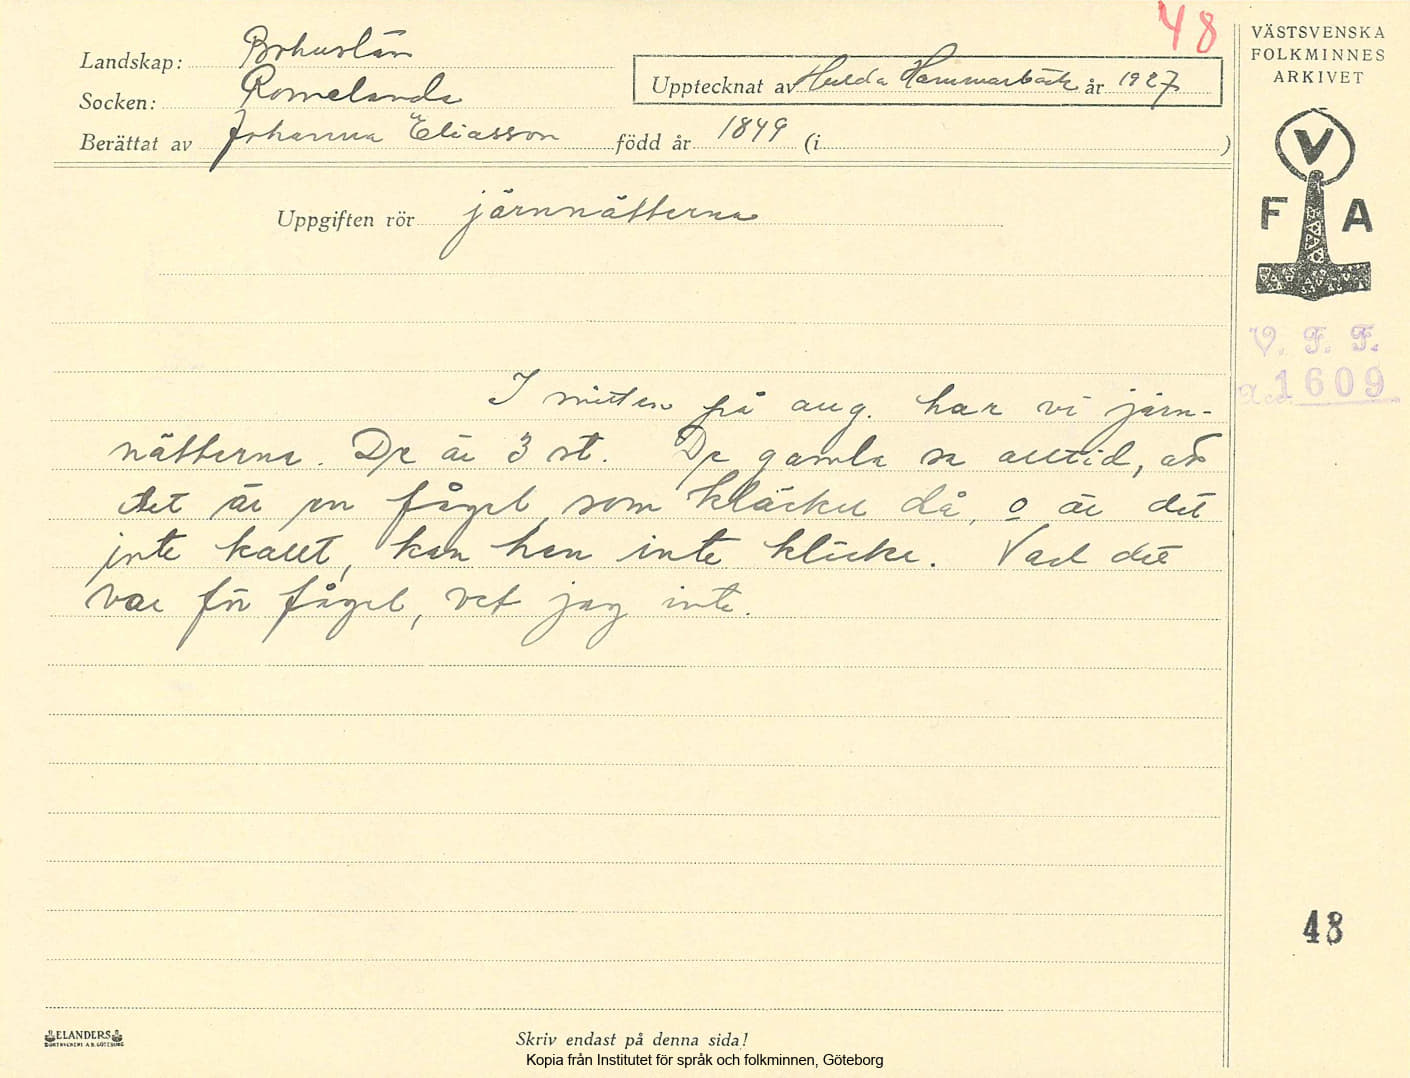 48
Landskap: Bohuslän
Socken: Romelanda
Upptecknat av Hulda Hammarbäck år 1927
Berättat av Johanna Eliasson född år 1849 (i )
Uppgiften rör järnnätterna
I mitten på aug. har vi järn-
nätterna. De äi 3 st. De gamla sa alltid, att
det äi en fågel, som kläcker då, o äi det
inte kallt, kan han inte kläcka. Vad det
var för fågel, vet jag inte.
VÄSTSVENSKA
FOLKMINNES
ARKIVET
V
F A
V. F. F.
Acc. 1609
48
ELANDERS
BOKTRYCKERI A.B. GÖTEBORG
Skriv endast på denna sida!
Kopia från Institutet för språk och folkminnen, Göteborg